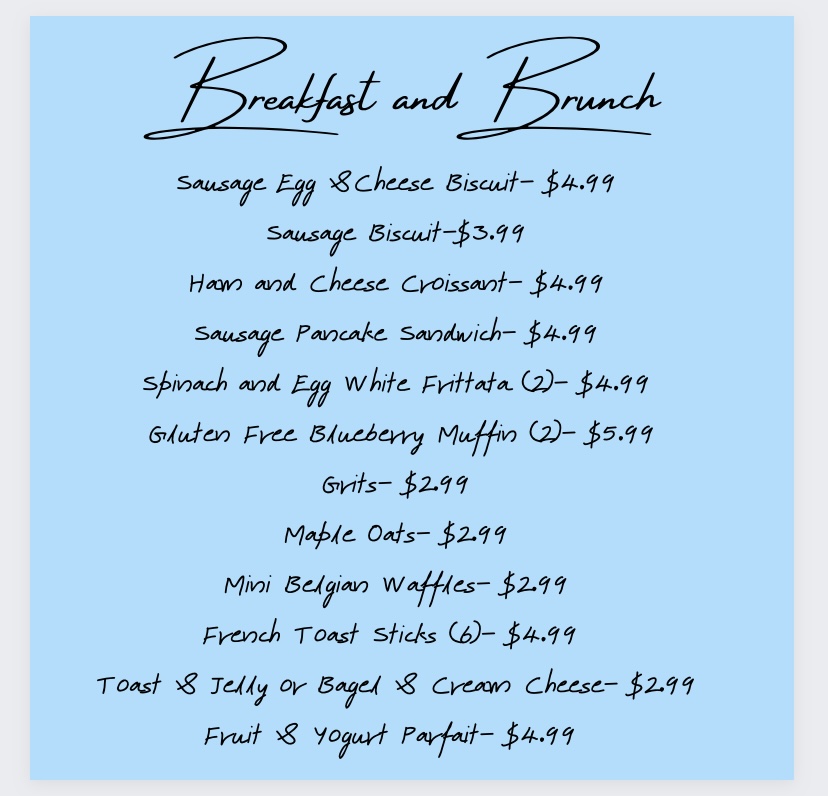 Breakfast and Brunch
Sausage Egg &Cheese Biscuit- $4.99
Sausage Biscuit-$3.99
Ham and Cheese Croissant- $4.99
Sausage Pancake Sandwich- $4.99
Spinach and Egg White Frittata (2)- $4.99
Gluten Free Blueberry Muffin (2)- $5.99
Grits- $2.99
Maple Oats- $2.99
Mini Belgian Waffles- $2.99
French Toast Sticks (6)- $4.99
Toast & Jelly or Bagel & Cream Cheese- $2.99
Fruit & Yogurt Parfait- $4.99